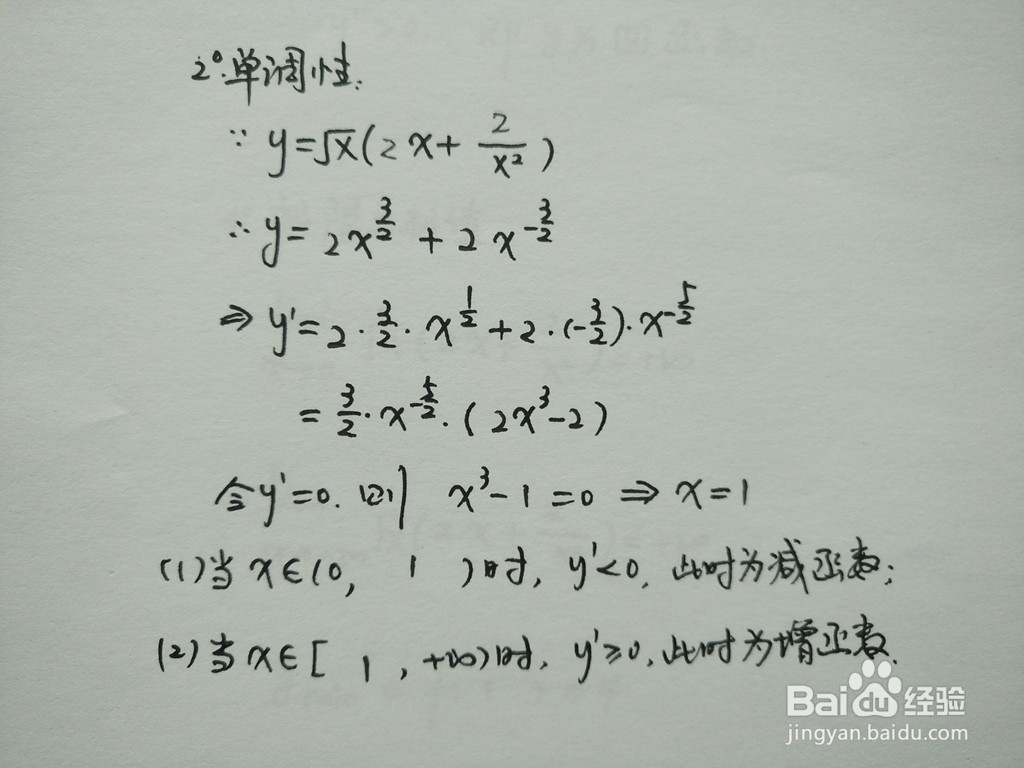 2°.单调性:
∵ y=√x(2x+2/x²)
∴ y=2x^(3/2)+2x^(-3/2)
⇒ y'=2·3/2·x^(1/2)+2·(-3/2)·x^(-5/2)
=3/2·x^(-5/2)·(2x³-2)
令y'=0.则 x³-1=0 ⇒ x=1
(1)当x∈(0, 1 )时, y'<0, 此时为减函数;
(2)当x∈[ 1 ,+∞)时, y'≥0,此时为增函数.
Baidu经验
jingyan.baidu.com